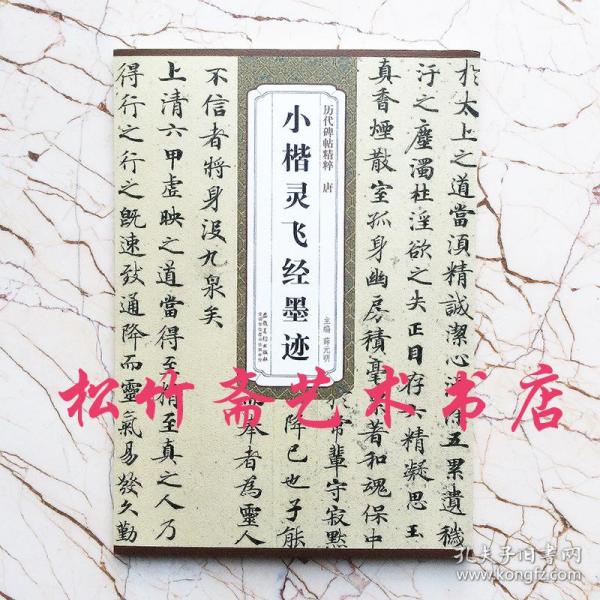 於太上之道當湏精誠潔心五累遺穢
汙之塵濁杜淫欲之失正目存六精凝思玉
真香煙散室孤身幽房積毫著和魂保中
常輩守寂默
降已也子能
奉者為靈人
不信者將身没九泉矣
上清六甲虛映之道當得至精至真之人乃
得行之行之既速致通降而靈氣易發久勤
历代碑帖精粹 唐
小楷灵飞经墨迹
主编 薛元明
安徽美术出版社
松竹斋艺术书店
孔夫子旧书网
www.kongfz.com